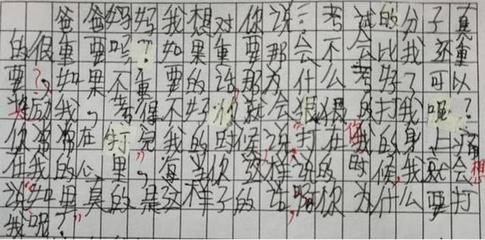 爸爸妈妈我想对你说：考试的分子真
的很重要吗？如果重要那会会比我还重
要？如果不重要的话那为什么考好了可以
奖励我，考得不好就会狠狠的打我呢？
你常常在打完我的时候说“打在你的身上痛
在我的心里”，每当你这样说的时候我就会想
说“如果真的是这样子的话”啊你为什么要打
我呢？